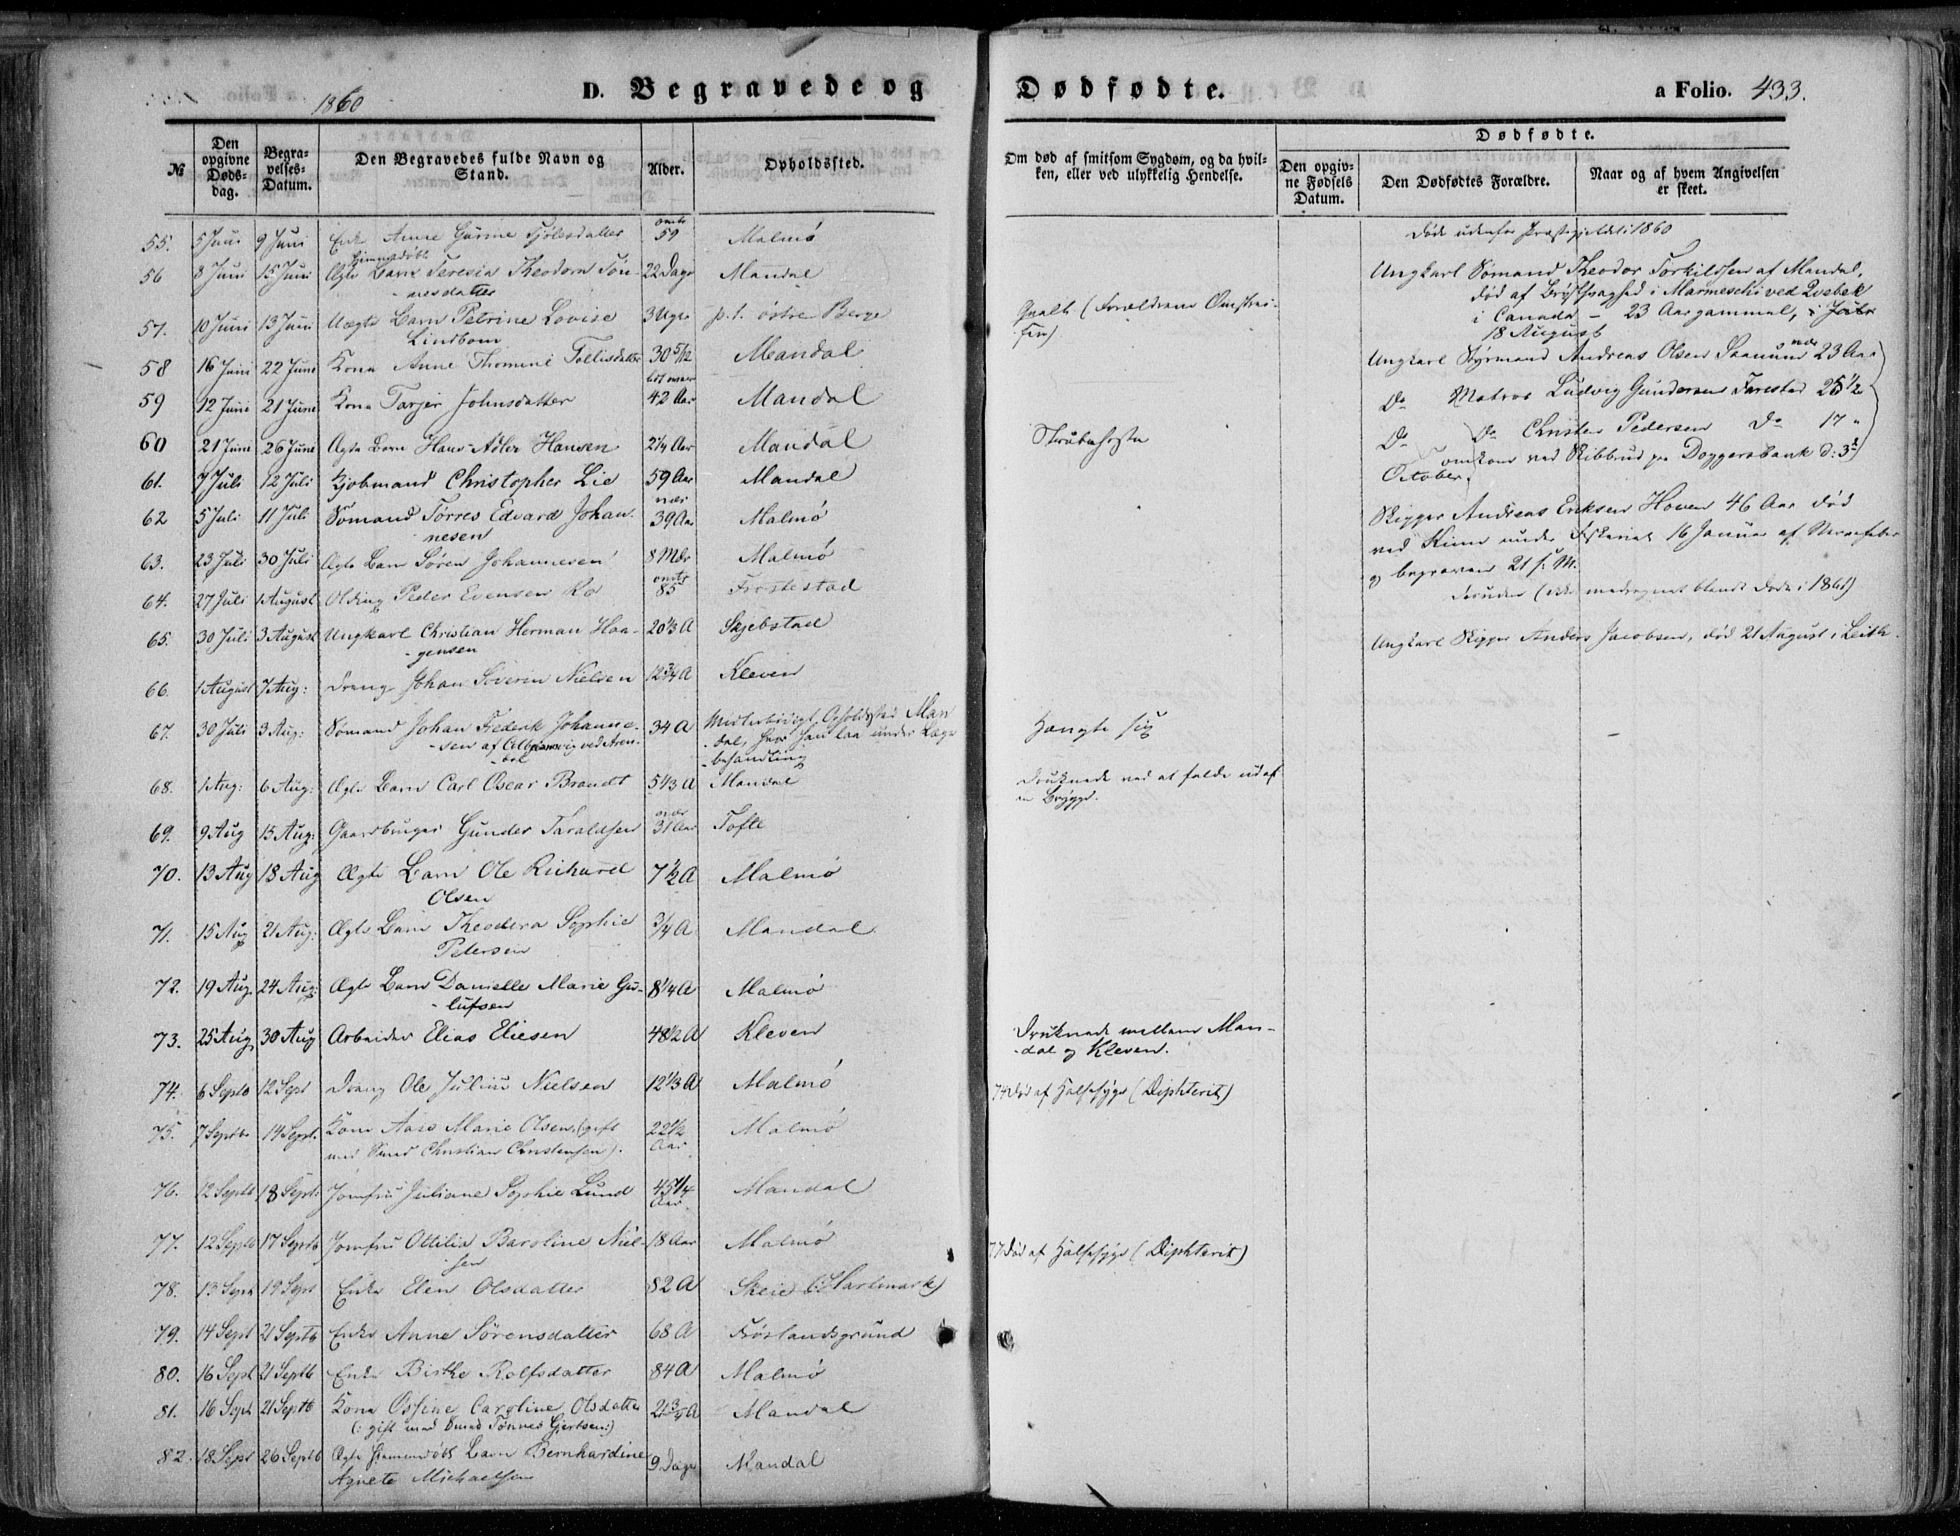 1860
D. Begravede og Dødfødte. a Folio. 433.
№ Den opgivne Dødsdag. Begravelses-Datum. Den Begravedes fulde Navn og Stand. Alder. Opholdssted. Om død af smitsom Sygdom, og da hvilken, eller ved ulykkelig Hendelse. Dødfødte. Den opgivne Fødsels Datum. Den Dødfødtes Forældre. Naar og af hvem Angivelsen er skeet.
55. 5 Juni 9 Juni Enke Anne Gurine Tjølesdatter omtr 59 Malmø
56 8 Juni 15 Juni Ægte hjemmedøbt Barn Teresia Theodora Tøn-
nesdatter 22 Dage Mandal
57. 10 Juni 13 Juni Uægte Barn Petrine Lovise
Lindbom 3 Uger p. t. østre Berge Qvalt (Forældrenes
58 16 Juni 22 Juni Kone Anne Thomine Tollisdatter 30 5/12 Mandal
59 12 Juni 21 Juni Kone Tarjer Johnsdatter 42 Aar Mandal
60 21 Juni 26 Juni Ægte Barn Hans Adler Hansen 2 1/4 Aar Mandal Strubehoste
61. 7 Juli 12 Juli Kjøbmand Christopher Lie 59 Aar Mandal
62 5 Juli 11 Juli Sømand Tørres Edvard Johan-
nesen nær 39 Aar Malmø
63. 23 Juli 30 Juli Ægte Barn Søren Johannesen 8 Mdr Malmø
64. 27 Juli 1 August Olding Peder Evensen Ro omtr 85 Frostestad
65. 30 Juli 3 August Ungkarl Christian Herman Haa-
gensen 20 1/3 A Skjebstad
66. 1 August 7 Aug: Dreng Johan Severin Nielsen 12 3/4 A Kleven
67. 30 Juli 3 Aug: Sømand Johan Frederik Johanne-
sen af ved Aren-
dal 34 A Midlertidigt Opholdssted Man-
dal, hvor han laa under Læge-
behandling Hængte sig
68. 1 Aug: 6 Aug: Ægte Barn Carl Oscar Brandt 5 1/3 A Mandal Druknede ved at falde ud af
en Brygge.
69. 9 Aug 15 Aug: Gaardbruger Gunder Taraldsen nær 31 Aar Tofte
70. 13 Aug 18 Aug Ægte Barn Ole Richard
Olsen 7 1/2 A Malmø
71. 15 Aug 21 Aug: Ægte Barn Theodora Sophie
Petersen 3/4 A Mandal
72. 19 Aug. 24 Aug: Ægte Barn Danielle Marie Gu-
lufsen 8 1/4 A Malmø
73. 25 Aug 30 Aug Arbeider Elias Eliesen 48 1/2 A Kleven Druknede mellem Man-
dal og Kleven.
74. 6 Septb 12 Sept Dreng Ole Julius Nielsen 12 1/3 A Malmø 74 Død af Halssyge (Diphterit)
75. 7 Septb. 14 Sept. Kone Aase Marie Olsen, (gift
med Smed Christian Christensen). 22 1/2 Aar Malmø
76. 12 Septb 18 Sept: Jomfru Juliane Sophie Lund 45 1/4 Aar. Mandal
77. 12 Septb 17 Septb Jomfru Ottilia Baroline Niel-
sen 18 Aar Malmø 77 Død af Halssyge (Diphterit)
78. 13 Sept 19 Sept Enke Elen Olsdatter 82 A Skeie (i Harkmark)
79. 14 Sept 21 Septb Enke Anne Sørensdatter 68 A Frøslandsgrund
80. 16 Sept 21 Septb Enke Birthe Rolfsdatter 84 A Malmø
81. 16 Sept 21 Septb Kone Ossine Caroline Olsdatter
(: gift med Smed Tønnes Gjertsen:) Mandal
82. 18 Sept 26 Septb Ægte hjemmedøbt Barn Bernhardine
Agnete Michaelsen 9 Dage Mandal
Døde udenfor Præstegjeldet i 1860
Ungkarl Sømand Theodor Torkildsen af Mandal,
død af Brystsyghed i Marmeschi ved Qvebek
i Canada – 23 Aar gammel,
18 August
Ungkarl Styrmand Andreas Olsen Sanund nær 23 Aar
Do Matros Ludvig Gundersen Farestad 25 1/2
Do Do Christen Pedersen Do 17 "
omkom ved Skibbrud paa Doggersbank d: 3
October.
Skipper Andreas Eriksen Hoven 46 Aar død
ved Kinn under Fiskeriet 16 Januar af Nervefeber
og begraven 21 s. M.
desuden (ikke medregnet blandt Døde i 1861)
Ungkarl Skipper Anders Jacobsen, død 21 August i Leith.